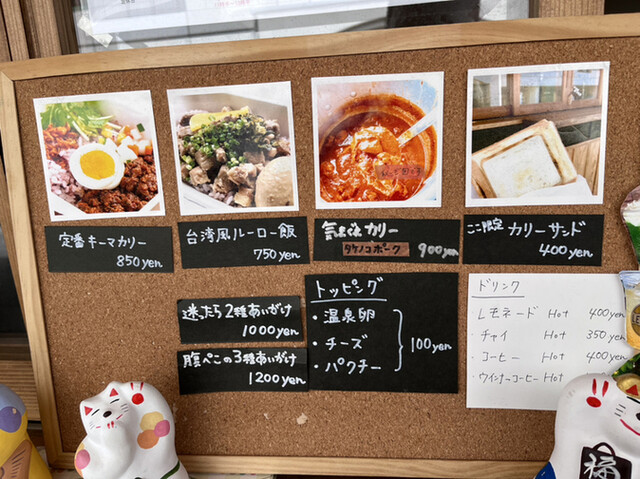 定番キーマカリー
850yen
台湾風ルーロー飯
750yen
気まぐれカリー
タケノコポーク 900yen
ここ限定 カリーサンド
400yen
迷ったら2種あいがけ
1000yen
腹ぺこの3種あいがけ
1200yen
トッピング
・温泉卵
・チーズ
・パクチー
100yen
ドリンク
・レモネード Hot 400yen
・チャイ Hot 350yen
・コーヒー Hot 400yen
・ウインナーコーヒー Hot
福